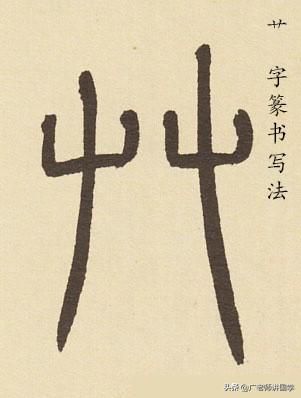 艹字篆书写法
艸
头条@广老师讲国学